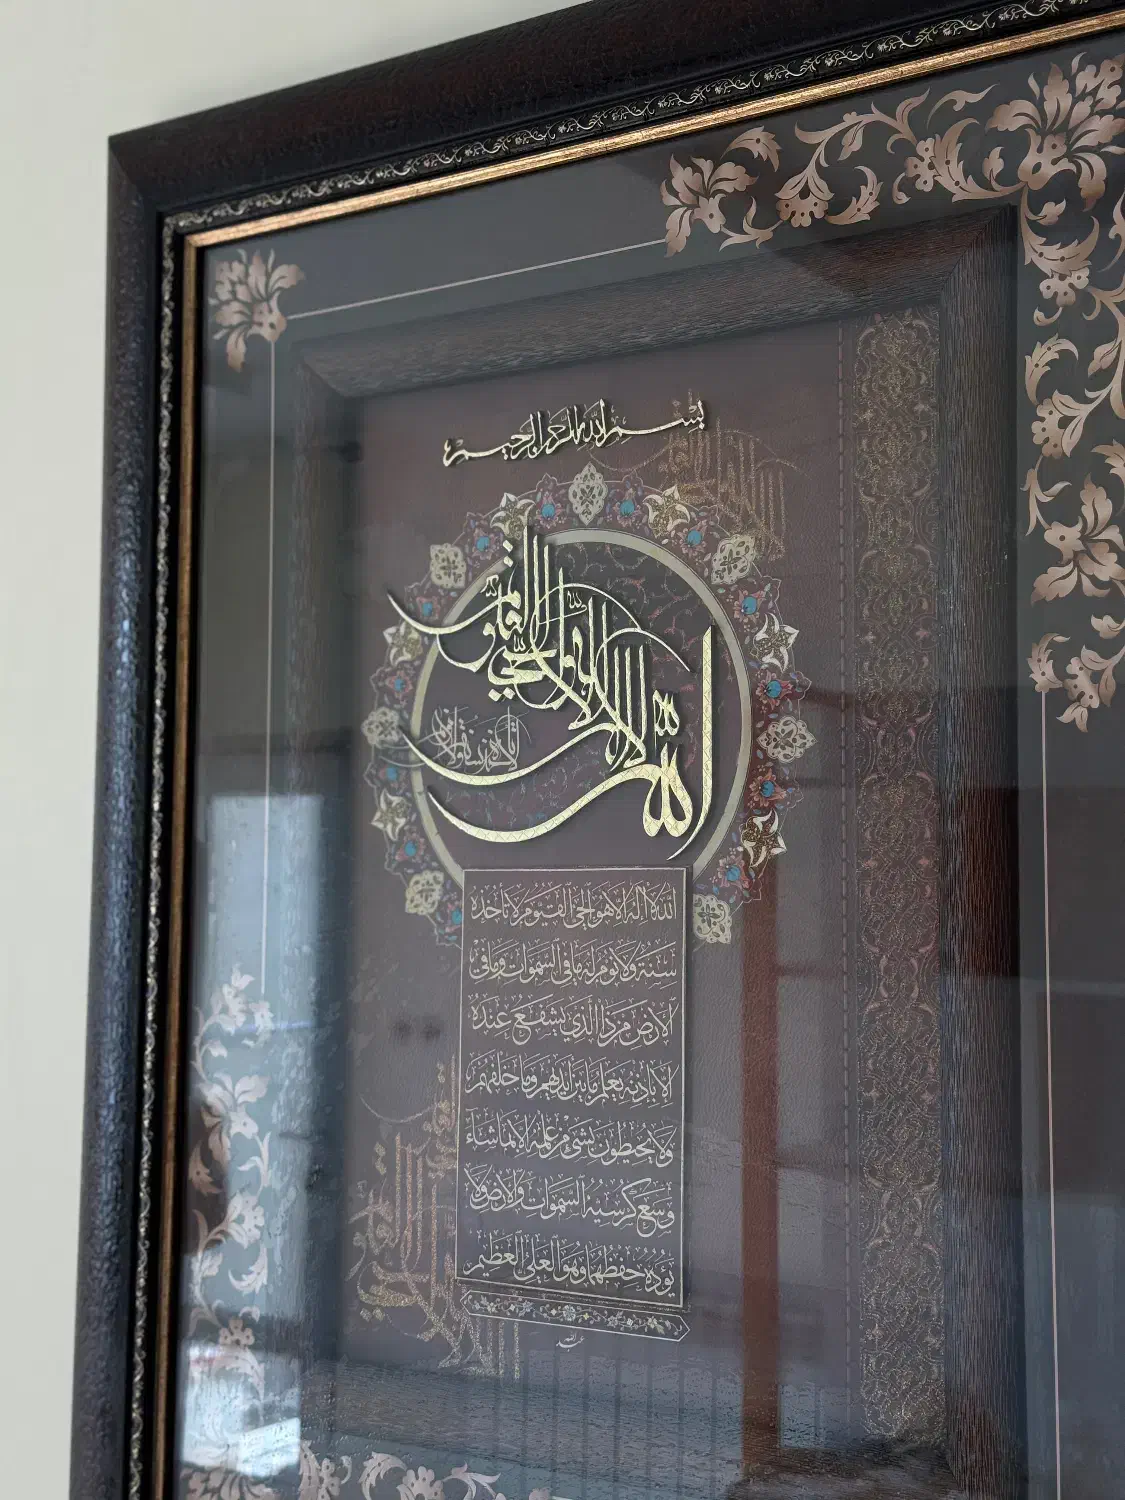 بسم الله الرحمن الرحيم
الله لا إله إلا هو الحي القيوم
لا تأخذه سنة ولا نوم
الله لا إله إلا هو الحي القيوم لا تأخذه
سنة ولا نوم له ما في السموات وما في
الأرض من ذا الذي يشفع عنده
إلا بإذنه يعلم ما بين أيديهم وما خلفهم
ولا يحيطون بشيء من علمه إلا بما شاء
وسع كرسيه السموات والأرض ولا
يؤده حفظهما وهو العلي العظيم